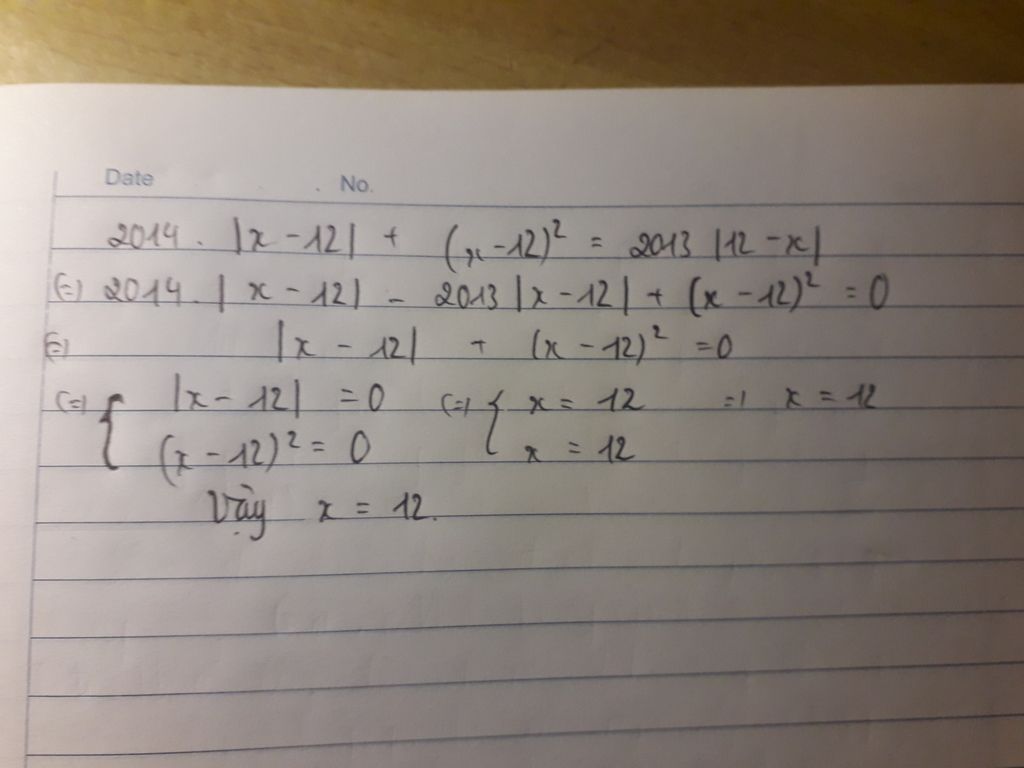 Date No.
2014. |x - 12| + (x - 12)² = 2013 |12 - x|
(=) 2014. | x - 12| - 2013 |x - 12| + (x - 12)² = 0
(=) |x - 12| + (x - 12)² = 0
(=) { |x - 12| = 0 (=) { x = 12 =) x = 12
(x - 12)² = 0 x = 12
Vậy x = 12.